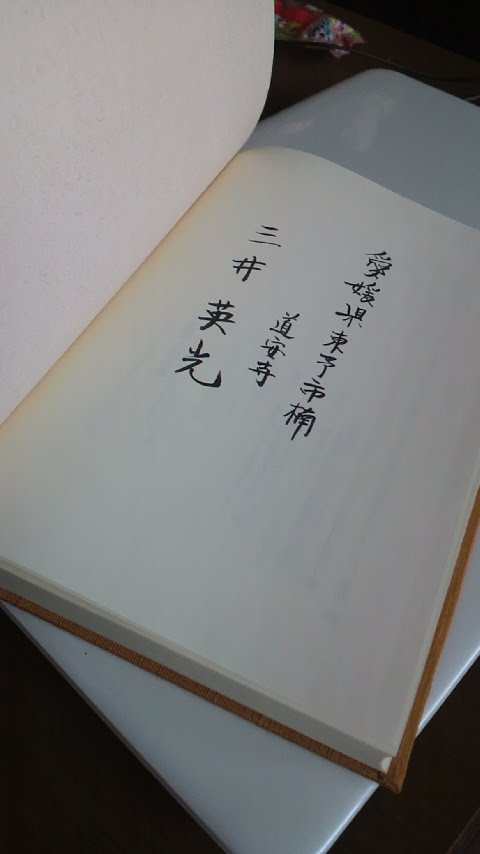 愛媛県東予市楠
道安寺
三井英光